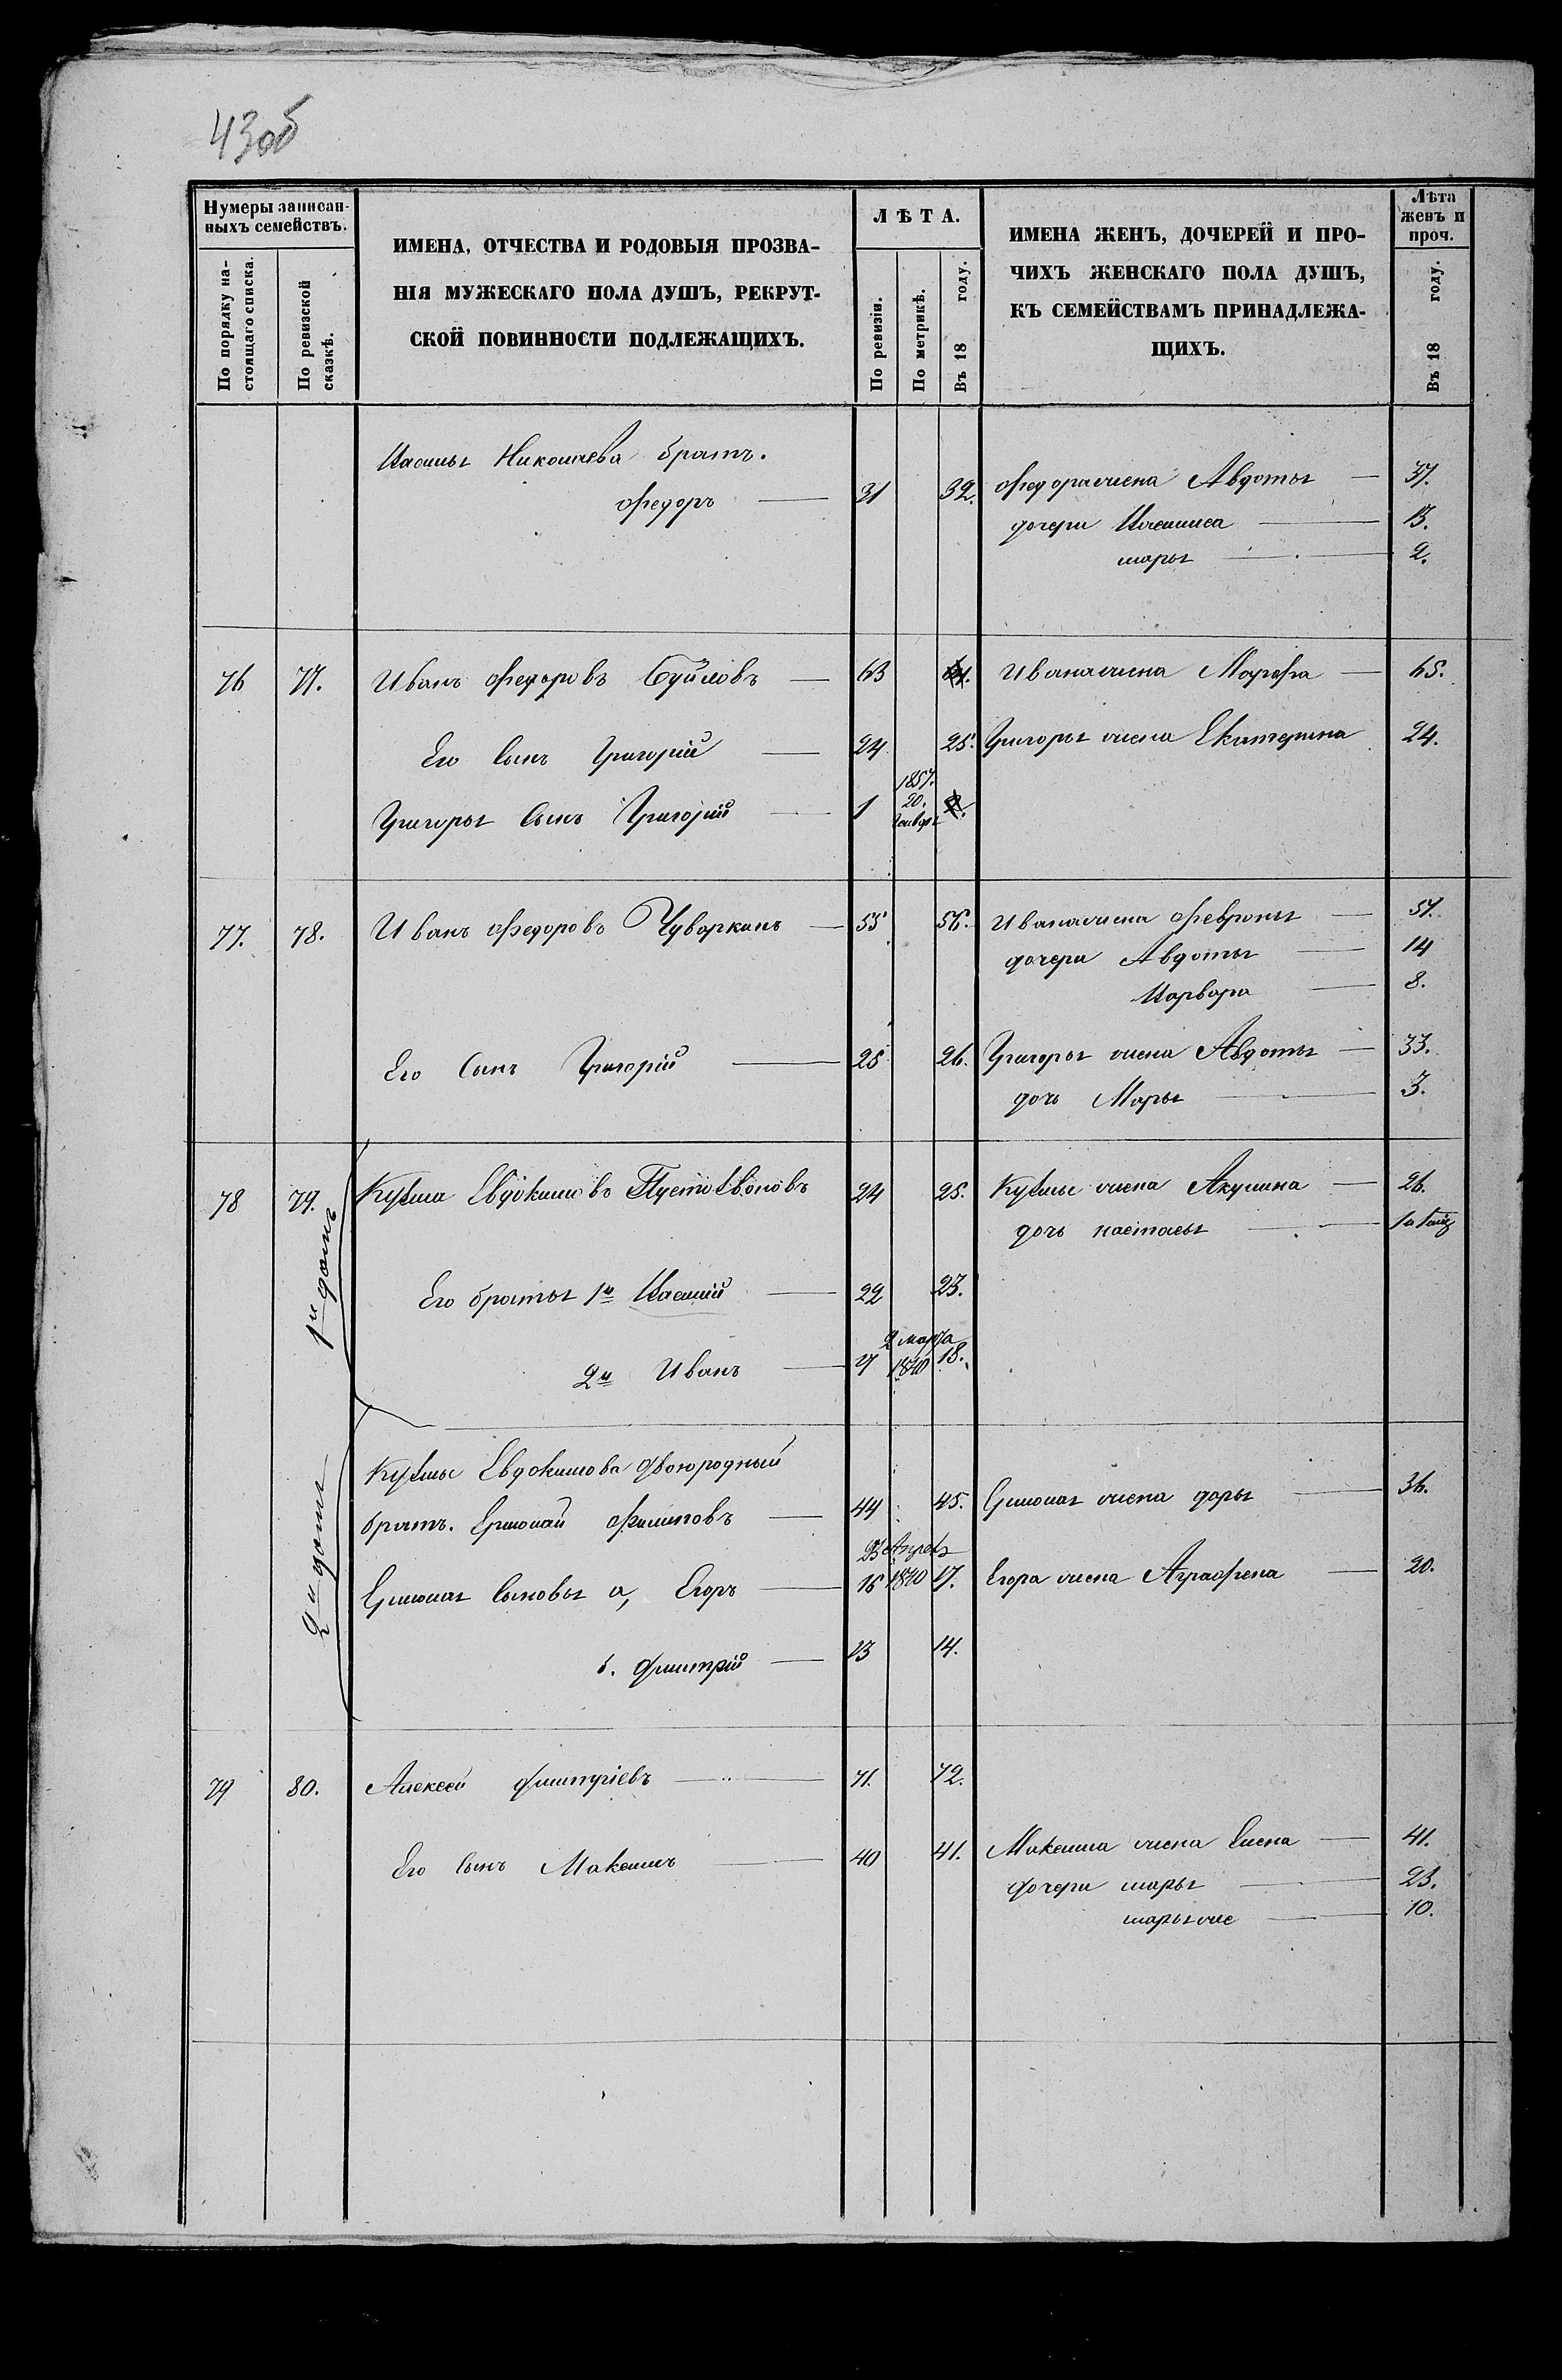 43 об
Нумеры записан-
ныхъ семействъ.
По порядку на-
стоящаго списка.
По ревизской
сказкѣ.
ИМЕНА, ОТЧЕСТВА И РОДОВЫЯ ПРОЗВА-
НІЯ МУЖЕСКАГО ПОЛА ДУШЪ, РЕКРУТ-
СКОЙ ПОВИННОСТИ ПОДЛЕЖАЩИХЪ.
ЛѢТА.
По ревизіи.
По метрикѣ.
Въ 18 году.
ИМЕНА ЖЕНЪ, ДОЧЕРЕЙ И ПРО-
ЧИХЪ ЖЕНСКАГО ПОЛА ДУШЪ,
КЪ СЕМЕЙСТВАМЪ ПРИНАДЛЕЖА-
ЩИХЪ.
Лѣта
женъ и
проч.
Въ 18 году.
Василья Николаева братъ.
Федоръ — 31 32. Федора жена Авдотья — 37.
дочери Василиса — 13.
марья — 2.
76 77. Иванъ Федоровъ — 63 64. Ивана жена Марфа — 65.
Его Сынъ Григорій — 24 25. Григорья жена Екатерина 24.
Григорья Сынъ Григорій — 1 1857. 20. Января 2.
77. 78. Иванъ Федоровъ Чуваркинъ — 55 56. Ивана жена Февронья — 57.
дочери Авдотья — 14
Варвара — 8.
Его Сынъ Григорій — 25 26. Григорья жена Авдотья — 33.
дочь Марья — 3.
78 79. Кузьма Евдокимовъ Пустозвоновъ 24 25. Кузьмы жена Акулина — 26.
дочь настасья —
1й домъ
Его братья 1й Василій — 22 23.
2й Иванъ — 17 2 марта 1840 18.
2й домъ
Кузьмы Евдокимова двоюродный
братъ. Ермолай Филиповъ — 44 45. Ермолая жена дарья — 36.
Ермолая Сыновья а, Егоръ — 16 23 Апреля 1840 17. Егора жена Аграфена — 20.
б. Дмитрій — 13 14.
79 80. Алексей Дмитріевъ — 71. 72.
Его Сынъ Максимъ — 40 41. Максима жена Елена — 41.
Дочери марья — 23.
марья же — 10.